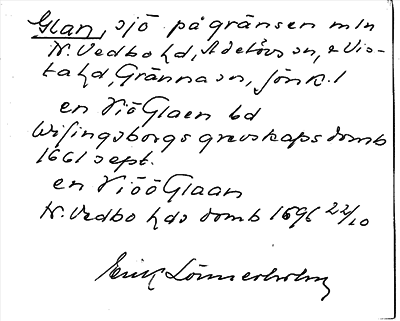 Glan, sjö på gränsen mln
N. Vedbo hd, Adelövs sn, & Vis-
ta hd, Gränna sn, Jönk. l
en Siö Glaen bd
Wisingsborgs grevskaps domb
1661 sept.
en Siöö Glaan
N. Vedbo hds domb 1696 22/10
Erik Lönnerholm